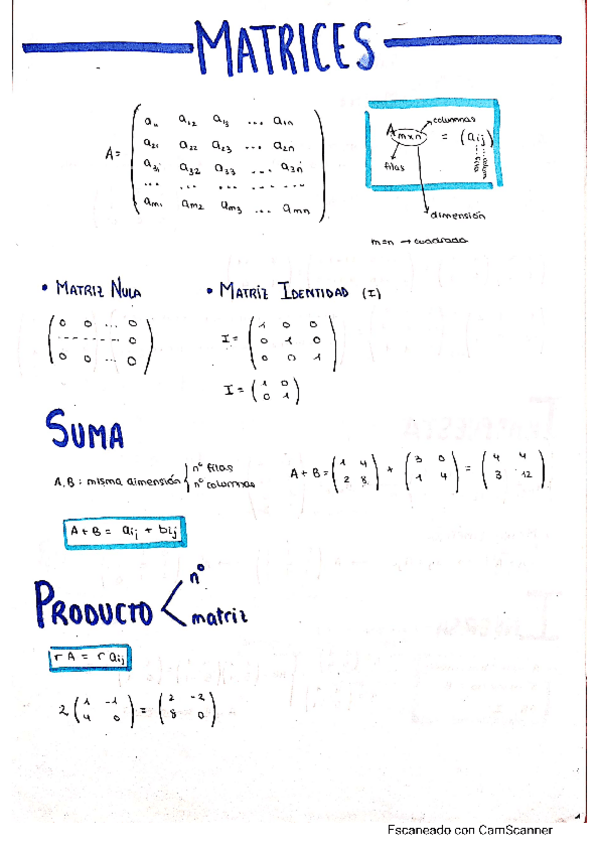 MATRICES
A = ( a11 a12 a13 ... a1n
a21 a22 a23 ... a2n
a31 a32 a33 ... a3n
... ... ... ... ...
am1 am2 am3 ... amn )
columnas
A mxn = (aij)
filas
dimensión
m=n → cuadrada
• MATRIZ NULA
( 0 0 ... 0
- - - - - - - 0
0 0 ... 0 )
• MATRIZ IDENTIDAD (I)
I = ( 1 0 0
0 1 0
0 0 1 )
I = ( 1 0
0 1 )
SUMA
A, B : misma dimensión { nº filas
nº columnas
A + B = ( 1 4
2 8 ) + ( 3 0
1 4 ) = ( 4 4
3 12 )
A + B = aij + bij
PRODUCTO < nº
matriz
r A = r aij
2 ( 1 -1
4 0 ) = ( 2 -2
8 0 )
Escaneado con CamScanner